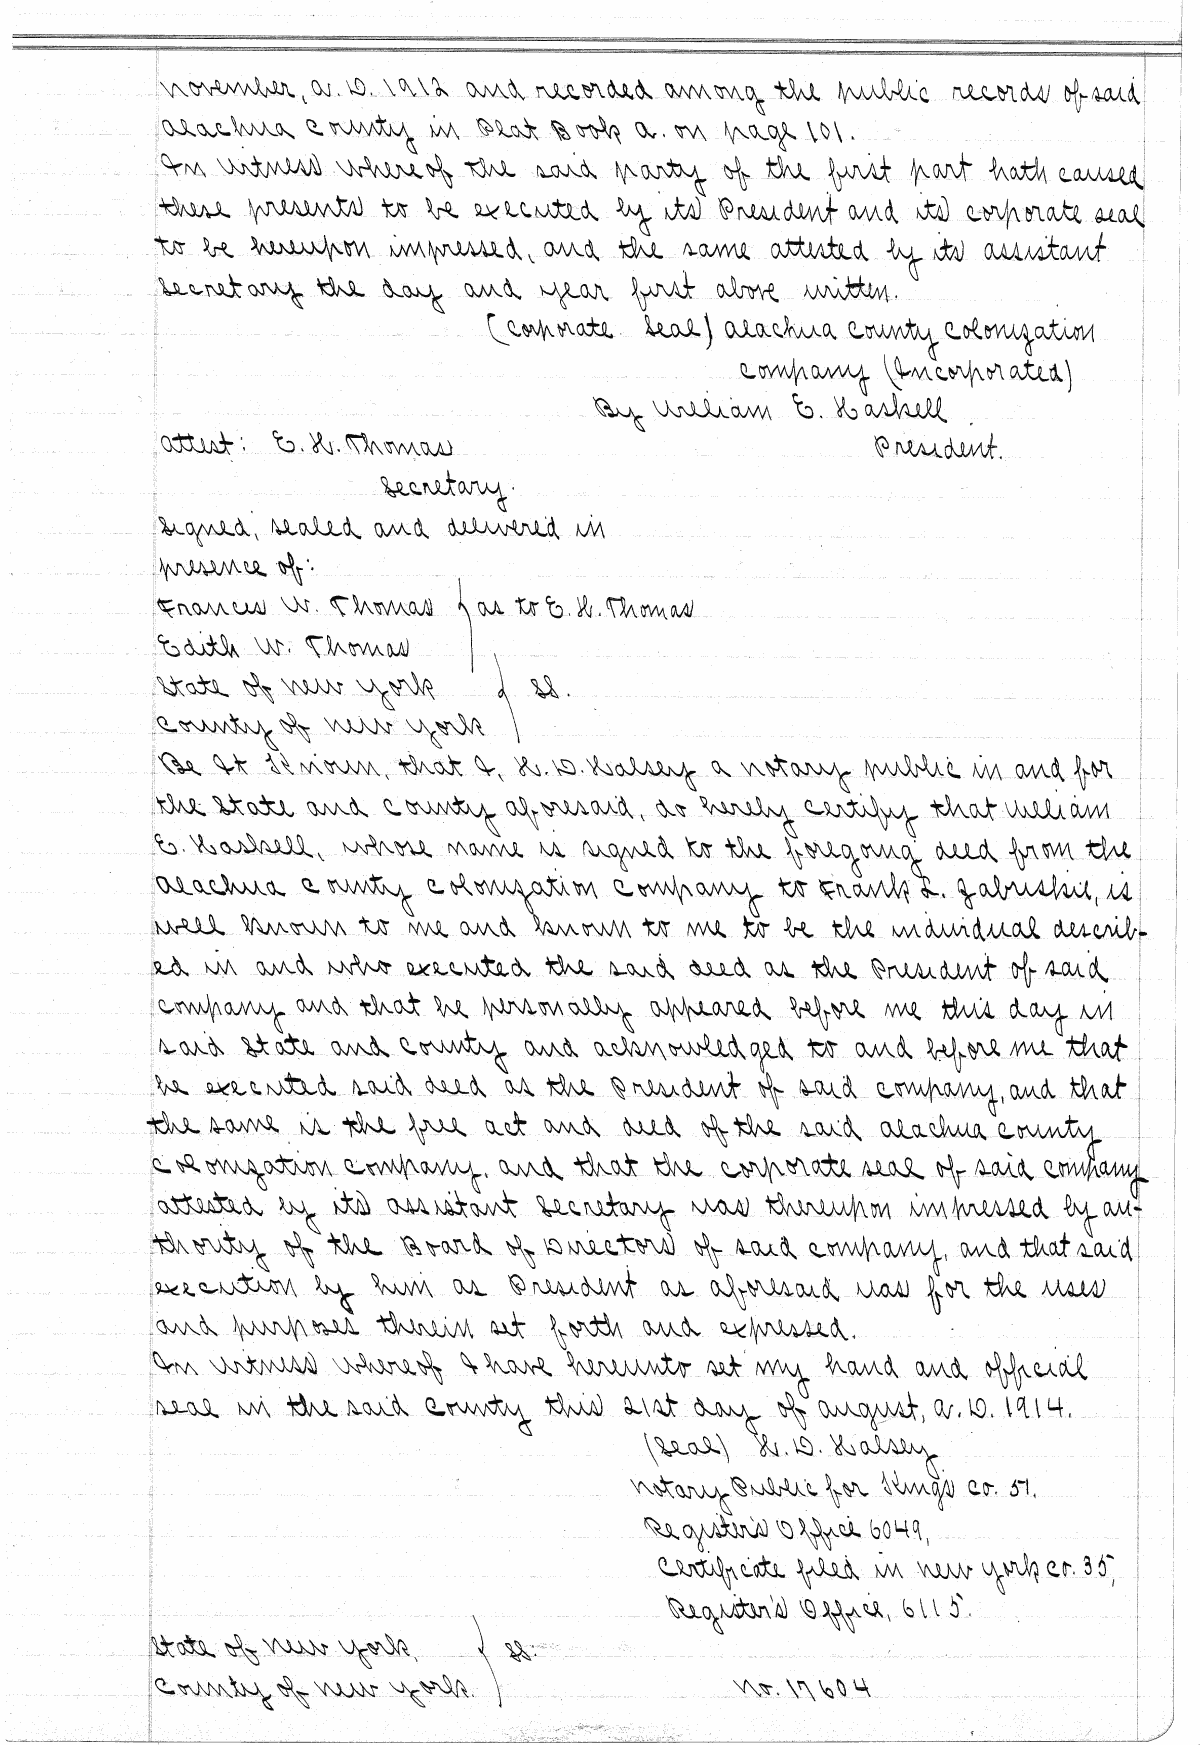 November, A.D. 1912 and recorded among the public records of said
Alachua County in Plat Book A. on page 101.
In Witness Whereof the said party of the first part hath caused
these presents to be executed by its President and its corporate seal
to be hereupon impressed, and the same attested by its assistant
Secretary the day and year first above written.
(Corporate Seal) Alachua County Colonization
Company (Incorporated)
By William E. Haskell
Attest: E. H. Thomas
President.
Secretary.
Signed, sealed and delivered in
presence of:
Frances W. Thomas } as to E. H. Thomas
Edith W. Thomas
State of New York } SS.
County of New York
Be It Known, that I, H. D. Halsey a notary public in and for
the State and County aforesaid, do hereby certify that William
E. Haskell, whose name is signed to the foregoing deed from the
Alachua County Colonization Company to Frank L. Zabriskie, is
well known to me and known to me to be the individual describ-
ed in and who executed the said deed as the President of said
Company and that he personally appeared before me this day in
said State and County and acknowledged to and before me that
he executed said deed as the President of said company, and that
the same is the free act and deed of the said Alachua County
Colonization Company, and that the corporate seal of said company
attested by its assistant Secretary was thereupon impressed by au-
thority of the Board of Directors of said company, and that said
execution by him as President as aforesaid was for the uses
and purposes therein set forth and expressed.
In Witness Whereof I have hereunto set my hand and official
seal in the said County this 21st day of August, A.D. 1914.
(Seal) H. D. Halsey
Notary Public for Kings Co. 51.
Register's Office 6049,
Certificate filed in New York Co. 35,
Register's Office, 6115.
State of New York, } SS.
County of New York. No. 17604